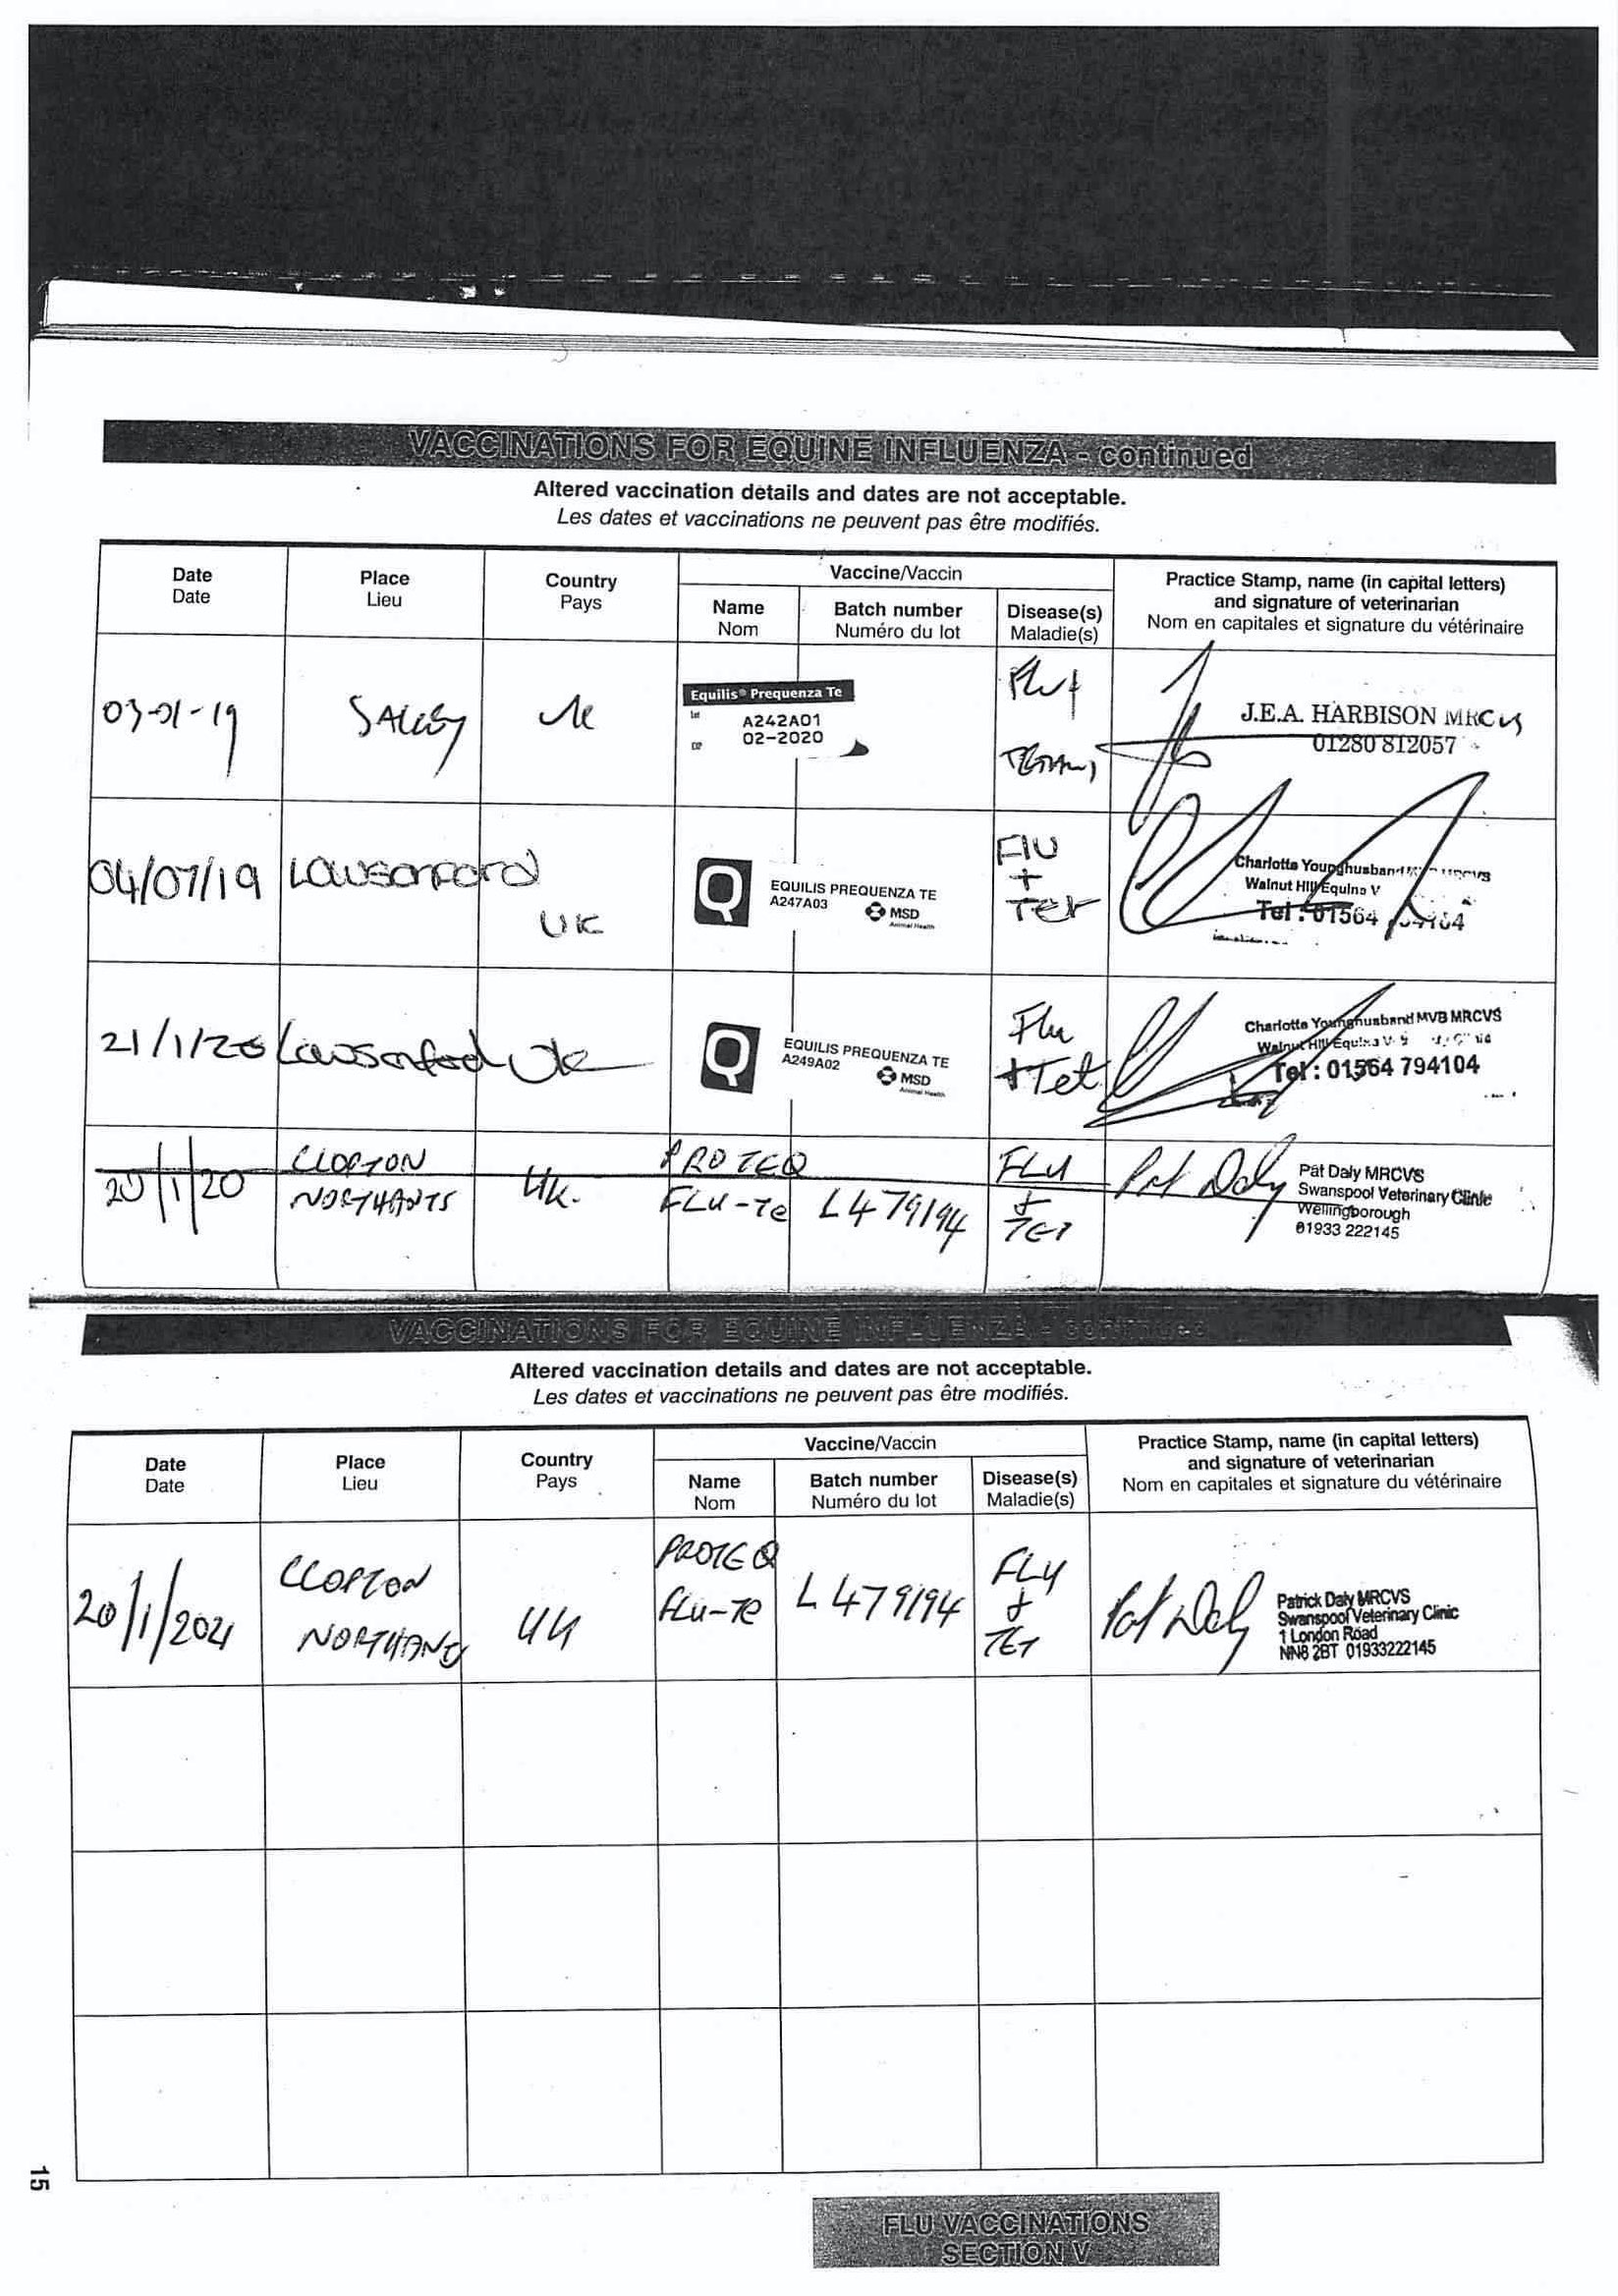 VACCINATIONS FOR EQUINE INFLUENZA - continued
Altered vaccination details and dates are not acceptable.
Les dates et vaccinations ne peuvent pas être modifiés.
Date
Date
Place
Lieu
Country
Pays
Vaccine/Vaccin
Name
Nom
Batch number
Numéro du lot
Disease(s)
Maladie(s)
Practice Stamp, name (in capital letters)
and signature of veterinarian
Nom en capitales et signature du vétérinaire
03-01-19
UK
Equilis® Prequenza Te
Lot A242A01
EXP 02-2020
Flu +
J.E.A. HARBISON MRCVS
01280 812057
04/07/19
Lowsonford
UK
Q
EQUILIS PREQUENZA TE
A247A03
MSD
Animal Health
Flu
+
Tet
Charlotte Younghusband MRCVS
Walnut Hill Equine V
Tel : 01564 794104
21/1/20
Lowsonford
UK
Q
EQUILIS PREQUENZA TE
A249A02
MSD
Animal Health
Flu
+Tet
Charlotte Younghusband MVB MRCVS
Walnut Hill Equine
Tel : 01564 794104
20/1/20
CLOPTON
NORTHANTS
UK.
PROTEQ
FLU-Te
L479194
FLU
+
TET
Pat Daly
Pat Daly MRCVS
Swanspool Veterinary Clinic
Wellingborough
01933 222145
VACCINATIONS FOR EQUINE INFLUENZA - continued
Altered vaccination details and dates are not acceptable.
Les dates et vaccinations ne peuvent pas être modifiés.
Date
Date
Place
Lieu
Country
Pays
Vaccine/Vaccin
Name
Nom
Batch number
Numéro du lot
Disease(s)
Maladie(s)
Practice Stamp, name (in capital letters)
and signature of veterinarian
Nom en capitales et signature du vétérinaire
20/1/2021
CLOPTON
NORTHANTS
UK
PROTEQ
FLU-Te
L479194
FLU
+
TET
Pat Daly
Patrick Daly MRCVS
Swanspool Veterinary Clinic
1 London Road
NN8 2BT 01933222145
15
FLU VACCINATIONS
SECTION V